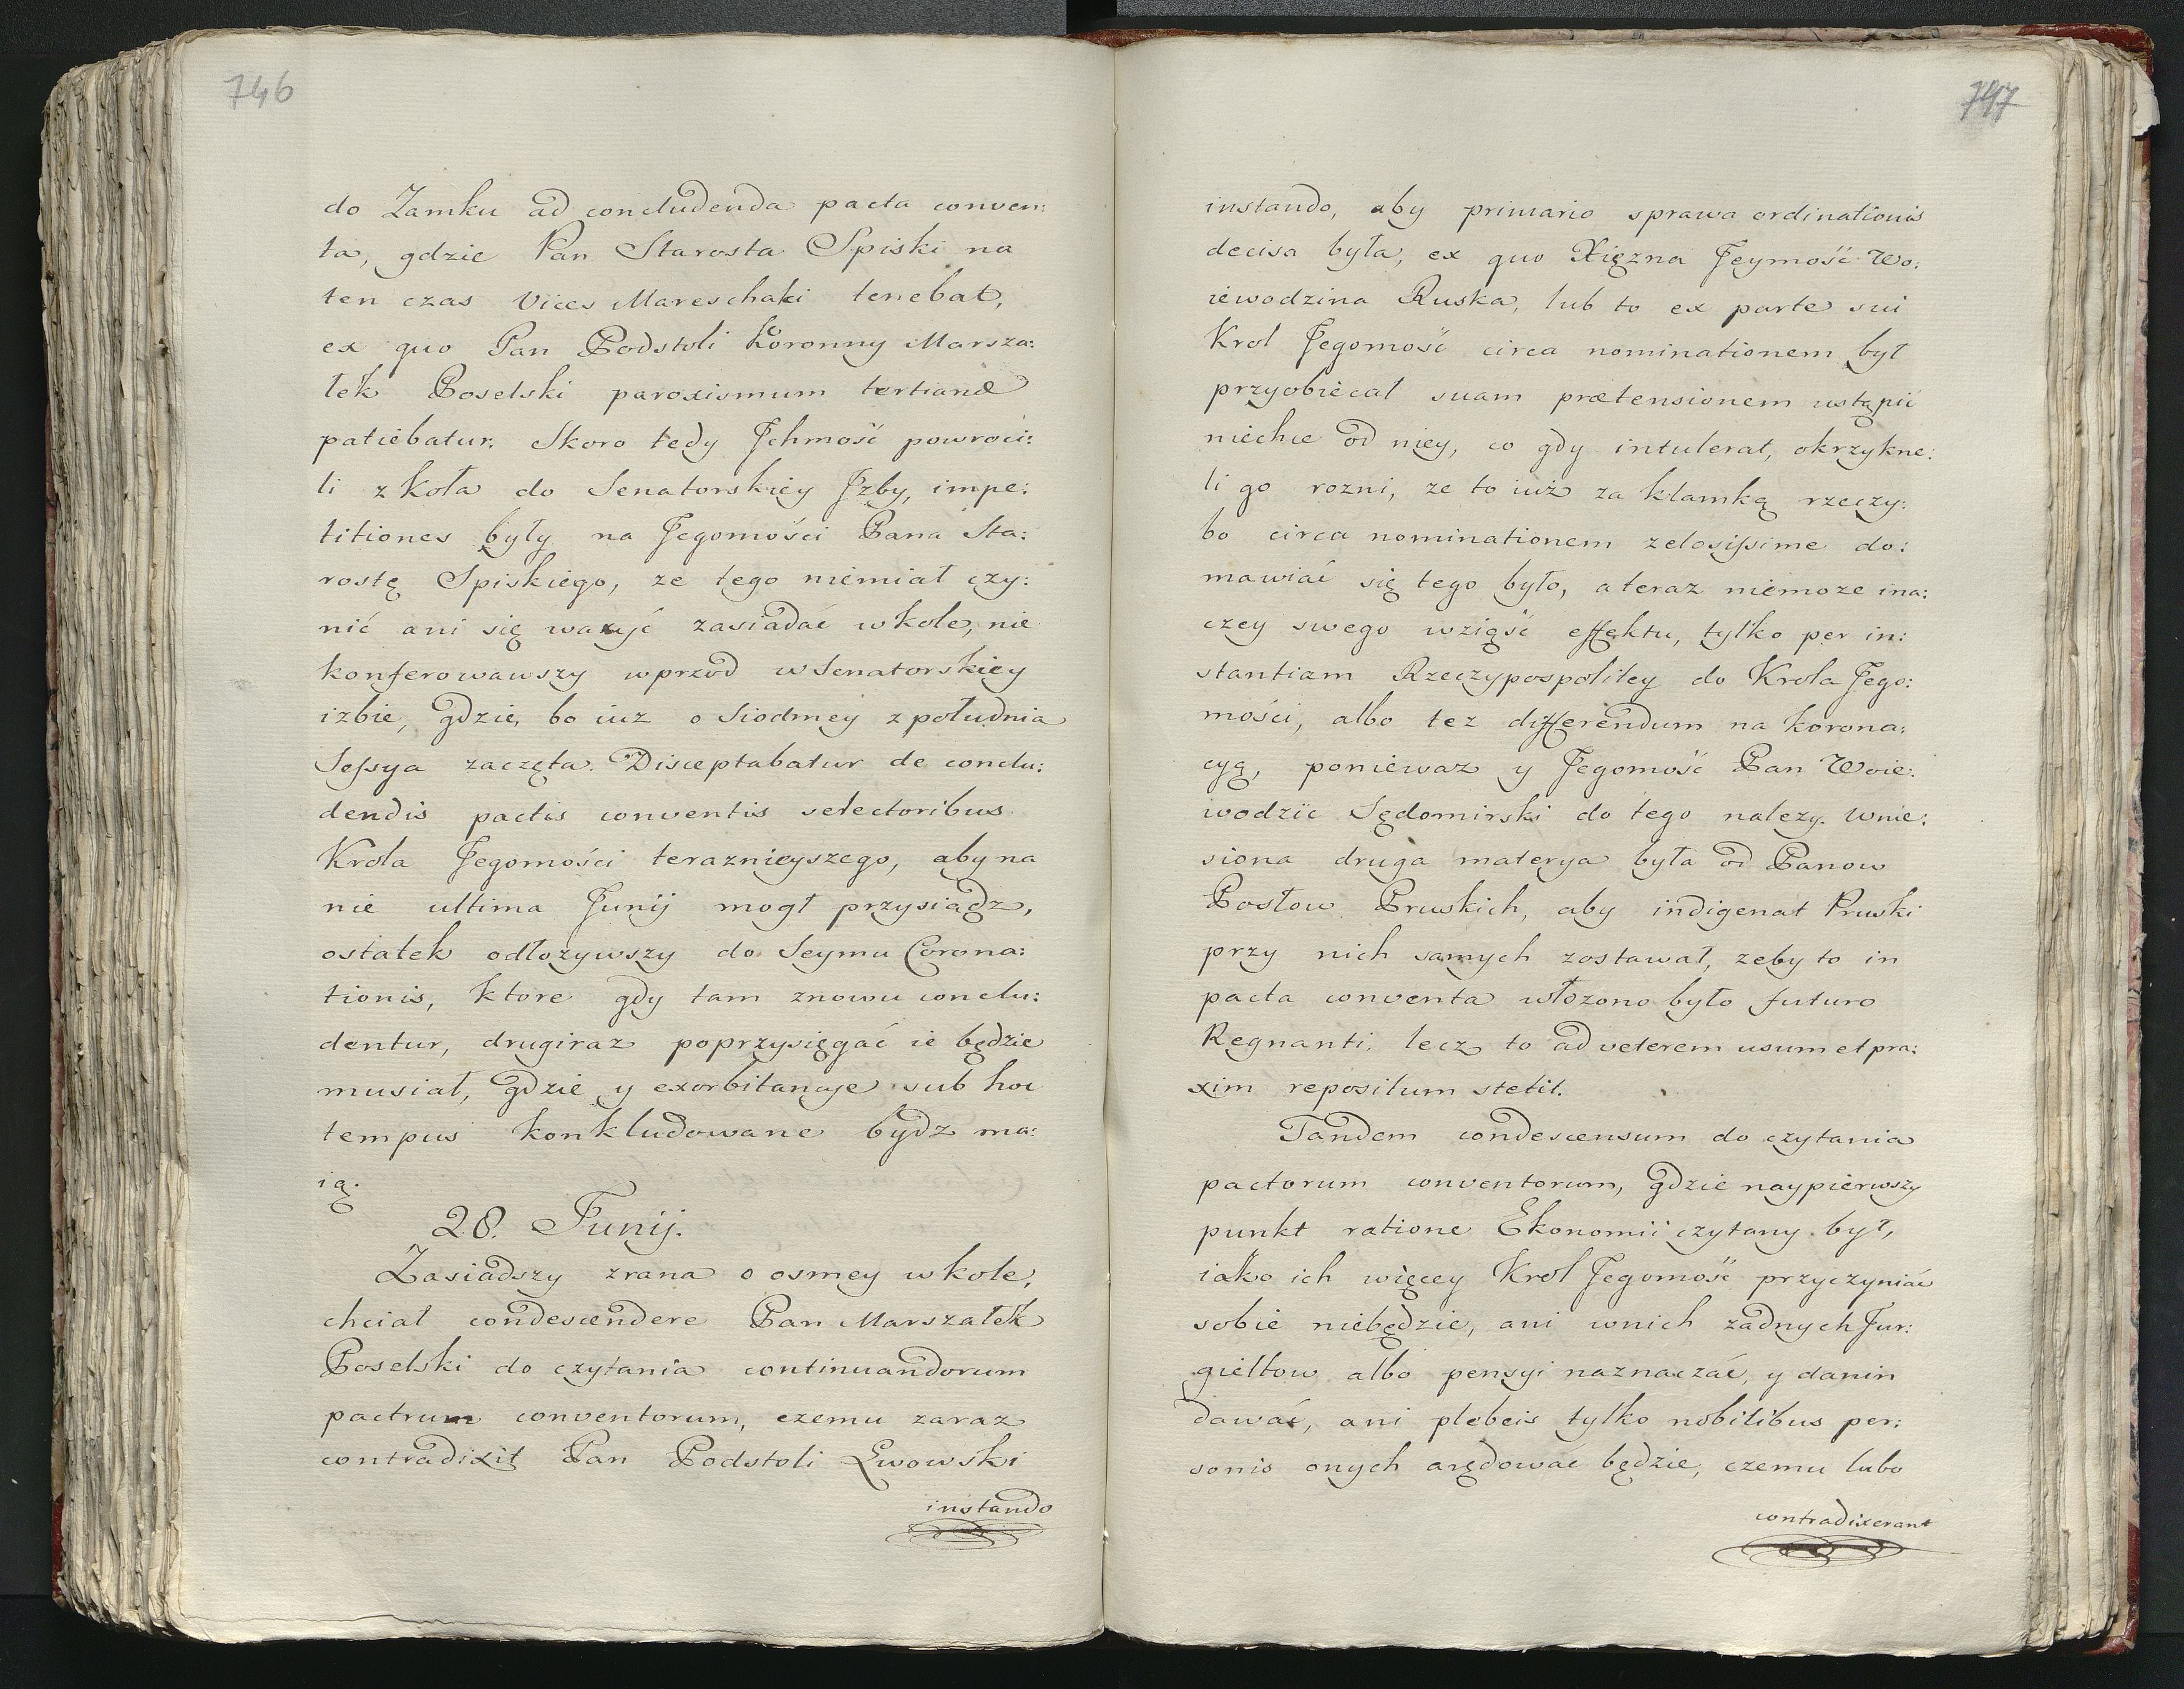 746
do Zamku ad concludenda pacta conven:
ta, gdzie Pan Starosta Spiski na
ten czas Vices Mareschalci tenebat,
ex quo Pan Podstoli Koronny Marsza:
łek Poselski paroxismum tertianæ
patiebatur. Skoro tedy Ichmość powroci:
li z Koła do Senatorskiey Izby, impe:
titiones były na Jegomości Pana Sta:
rostę Spiskiego, ze tego niemiał czy:
nić ani się wazyć zasiadać w kole, nie
konferowawszy wprzod w Senatorskiey
izbie, gdzie, bo iuz o Siodmey z południa
Sessya zaczęta. Disceptabatur de conclu:
dendis pactis conventis selectoribus
Krola Jegomości teraznieyszego, aby na
nie ultima Junij mogł przysiądz,
ostatek odłozywszy do Seymu Corona:
tionis, ktore gdy tam znowu conclu:
dentur, drugiraz poprzysięgać ie będzie
musiał, gdzie y exorbitancye sub hoc
tempus konkludowane bydz ma:
ią.
28. Junij.
Zasiadszy zrana o osmey w kole,
chciał condescendere Pan Marszałek
Poselski do czytania continuandorum
pactrum conventorum, czemu zaraz
contradixit Pan Podstoli Lwowski
instando
747
instando, aby primario sprawa ordinationis
decisa była, ex quo Xięzna Jeymość Wo:
iewodzina Ruska, lub to ex parte sui
Krol Jegomość circa nominationem był
przyobiecał suam prætensionem ustąpić
niechce od niey, co gdy intulerat, okrzykne:
li go rozni, ze to iuż za klamką rzeczy:
bo circa nominationem zelosissime do:
mawiać się tego było, a teraz niemoze ina:
czey swego wziąść effektu, tylko per in:
stantiam Rzeczypospolitey do Krola Jego:
mości, albo tez differendum na korona:
cyą, poniewaz y Jegomość Pan Woie:
wodzic Sędomirski do tego nalezy. Wnie:
siona druga materya była od Panow
Posłow Pruskich, aby indigenat Pruski
przy nich samych zostawał, zeby to in
pacta conventa włozono było futuro
Regnanti, lecz to ad veterem usum et pra:
xim repositum stetit.
Tandem condescensum do czytania
pactorum conventorum, gdzie naypierwszy
punkt ratione Ekonomii czytany był,
iako ich więcey Krol Jegomość przyczyniać
sobie niebędzie, ani wnich żadnych Jur:
gieltow albo pensyi naznaczać, y danin
dawać, ani plebeis tylko nobilibus per:
sonis onych arędować będzie, czemu lubo
contradixerant